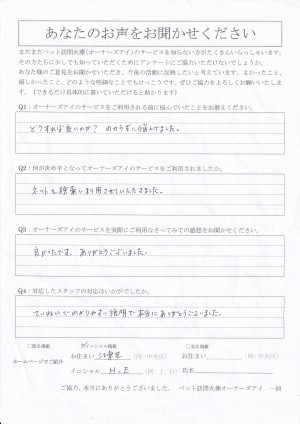 あなたのお声をお聞かせください
まだまだペット訪問火葬（オーナーズアイ）のサービスを知らない方がたくさんいらっしゃいます。
その方たちに少しでも知っていただくためにアンケートにご協力いただけないでしょうか。
あなた様のご意見をお聞かせいただき、今後の活動に反映したいと考えています。よかったこと、
嬉しかったこと、どのような些細なことでもけっこうです。ぜひご協力をよろしくお願いいたします。
（できるだけ具体的に書いていただけると助かります）
Q1：オーナーズアイのサービスをご利用される前に悩んでいたことをお教えください。
どうすれば良いのか？ わからずに悩んでました。
Q2：何が決め手となってオーナーズアイのサービスをご利用されましたか。
ネットを検索し利用させていただきました。
Q3：オーナーズアイのサービスを実際にご利用なさってみての感想をお聞かせください。
良かったです。ありがとうございました。
Q4：対応したスタッフの対応はいかがでしたか。
ていねいでわかりやすい説明で本当にありがとうございました。
□匿名掲載 ☑イニシャル掲載 □実名掲載
ホームページでご紹介
お住まい （例：中央区） お住まい （例：中央区）
イニシャル H.E （例：J.H） 氏名
ご協力、本当にありがとうございました。 ペット訪問火葬オーナーズアイ 一同